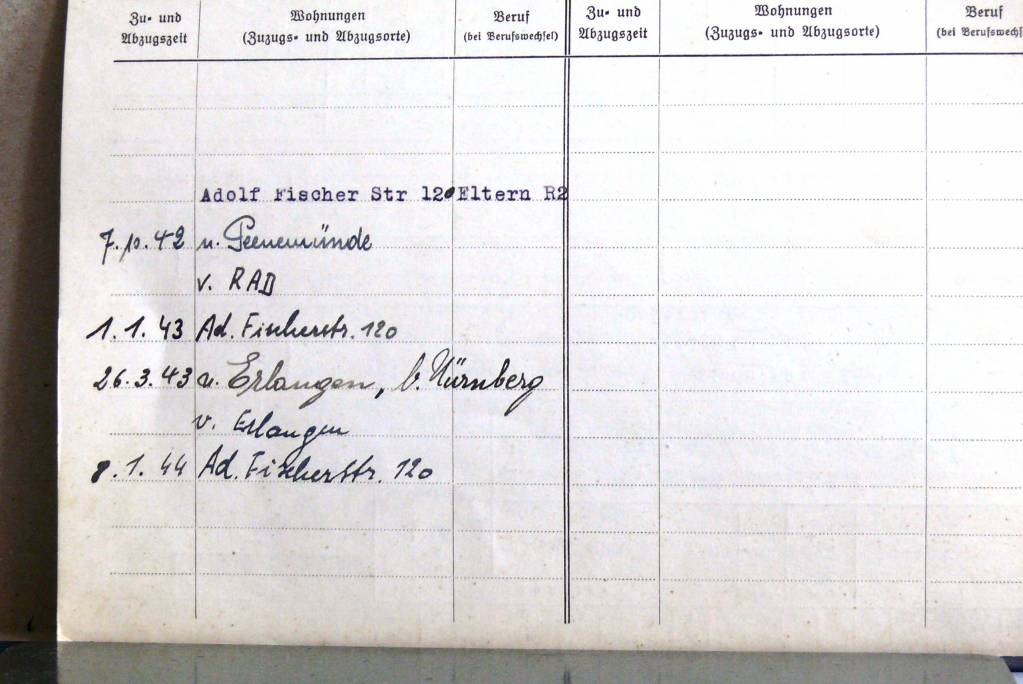 Zu- und Abzugszeit
Wohnungen
(Zuzugs- und Abzugsorte)
Beruf
(bei Berufswechsel)
Zu- und Abzugszeit
Wohnungen
(Zuzugs- und Abzugsorte)
Beruf
(bei Berufswechsl
Adolf Fischer Str 120 Eltern R2
7.10.42 n. Peenemünde
v. RAD
1.1.43 Ad. Fischerstr. 120
26.3.43 n. Erlangen, b. Nürnberg
v. Erlangen
8.1.44 Ad. Fischerstr. 120